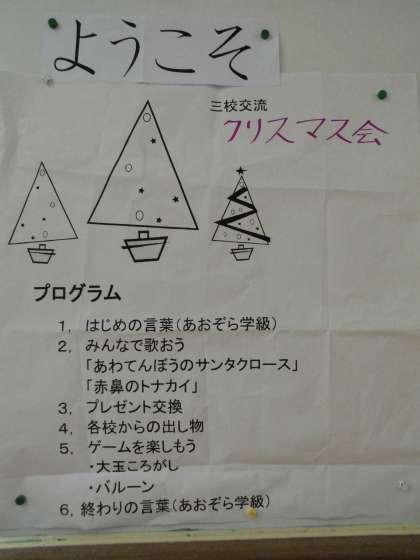 ようこそ
三校交流
クリスマス会
プログラム
1, はじめの言葉(あおぞら学級)
2, みんなで歌おう
「あわてんぼうのサンタクロース」
「赤鼻のトナカイ」
3, プレゼント交換
4, 各校からの出し物
5, ゲームを楽しもう
・大玉ころがし
・バルーン
6, 終わりの言葉(あおぞら学級)